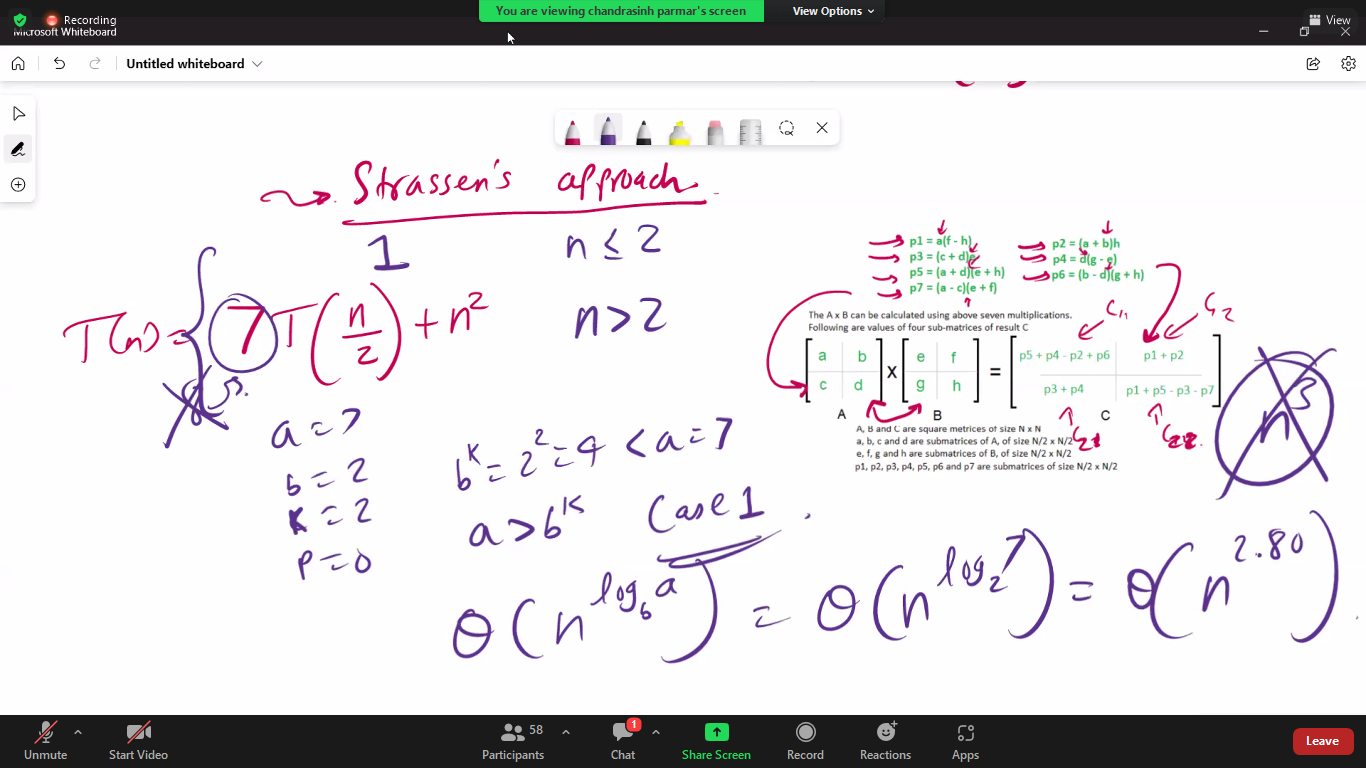 Recording
You are viewing chandrasinh parmar's screen
View Options
View
Microsoft Whiteboard
Untitled whiteboard
Strassen's approach
1 n ≤ 2
T(n) = 7T(n/2) + n² n > 2
a = 7
b = 2
k = 2
p = 0
b^k = 2² = 4 < a = 7
a > b^k Case 1
θ(n^log_b a) = θ(n^log_2 7) = θ(n^2.80)
p1 = a(f - h) p2 = (a + b)h
p3 = (c + d)e p4 = d(g - e)
p5 = (a + d)(e + h) p6 = (b - d)(g + h)
p7 = (a - c)(e + f)
The A x B can be calculated using above seven multiplications.
Following are values of four sub-matrices of result C
C11 C12
a b e f p5 + p4 - p2 + p6 p1 + p2
X =
c d g h p3 + p4 p1 + p5 - p3 - p7
A B C
C21 C22
n³
A, B and C are square metrices of size N x N
a, b, c and d are submatrices of A, of size N/2 x N/2
e, f, g and h are submatrices of B, of size N/2 x N/2
p1, p2, p3, p4, p5, p6 and p7 are submatrices of size N/2 x N/2
Unmute
Start Video
Participants 58
Chat 1
Share Screen
Record
Reactions
Apps
Leave